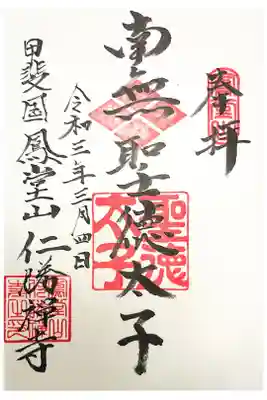 奉拝
南無聖徳太子
令和三年三月四日
甲斐国鳳堂山仁勝禅寺
聖徳太子